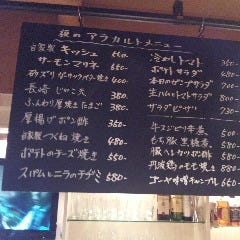 夜の アラカルトメニュー
自家製 キッシュ 550.
サーモンマリネ 550.
砂ずり ガーリックバター焼き 400
長崎 じゃこ天 380-
ふんわり厚焼きたまご 380-
厚揚げ ポン酢 350-
自家製 つくね 焼き 480-
ポテトのチーズ焼き 580-
スパムとニラのチヂミ 580-
冷やしトマト
ポテトサラダ
本日のサラダ
生ハムとトマトサラダ
サラダピザ 730-
牛スジピリ辛煮 500-
もち豚 黒糖煮 580-
豚ヒレカツポン酢 580-
丹波鶏のモモ焼き 880-
ゴーヤ味噌チャンプル 550-